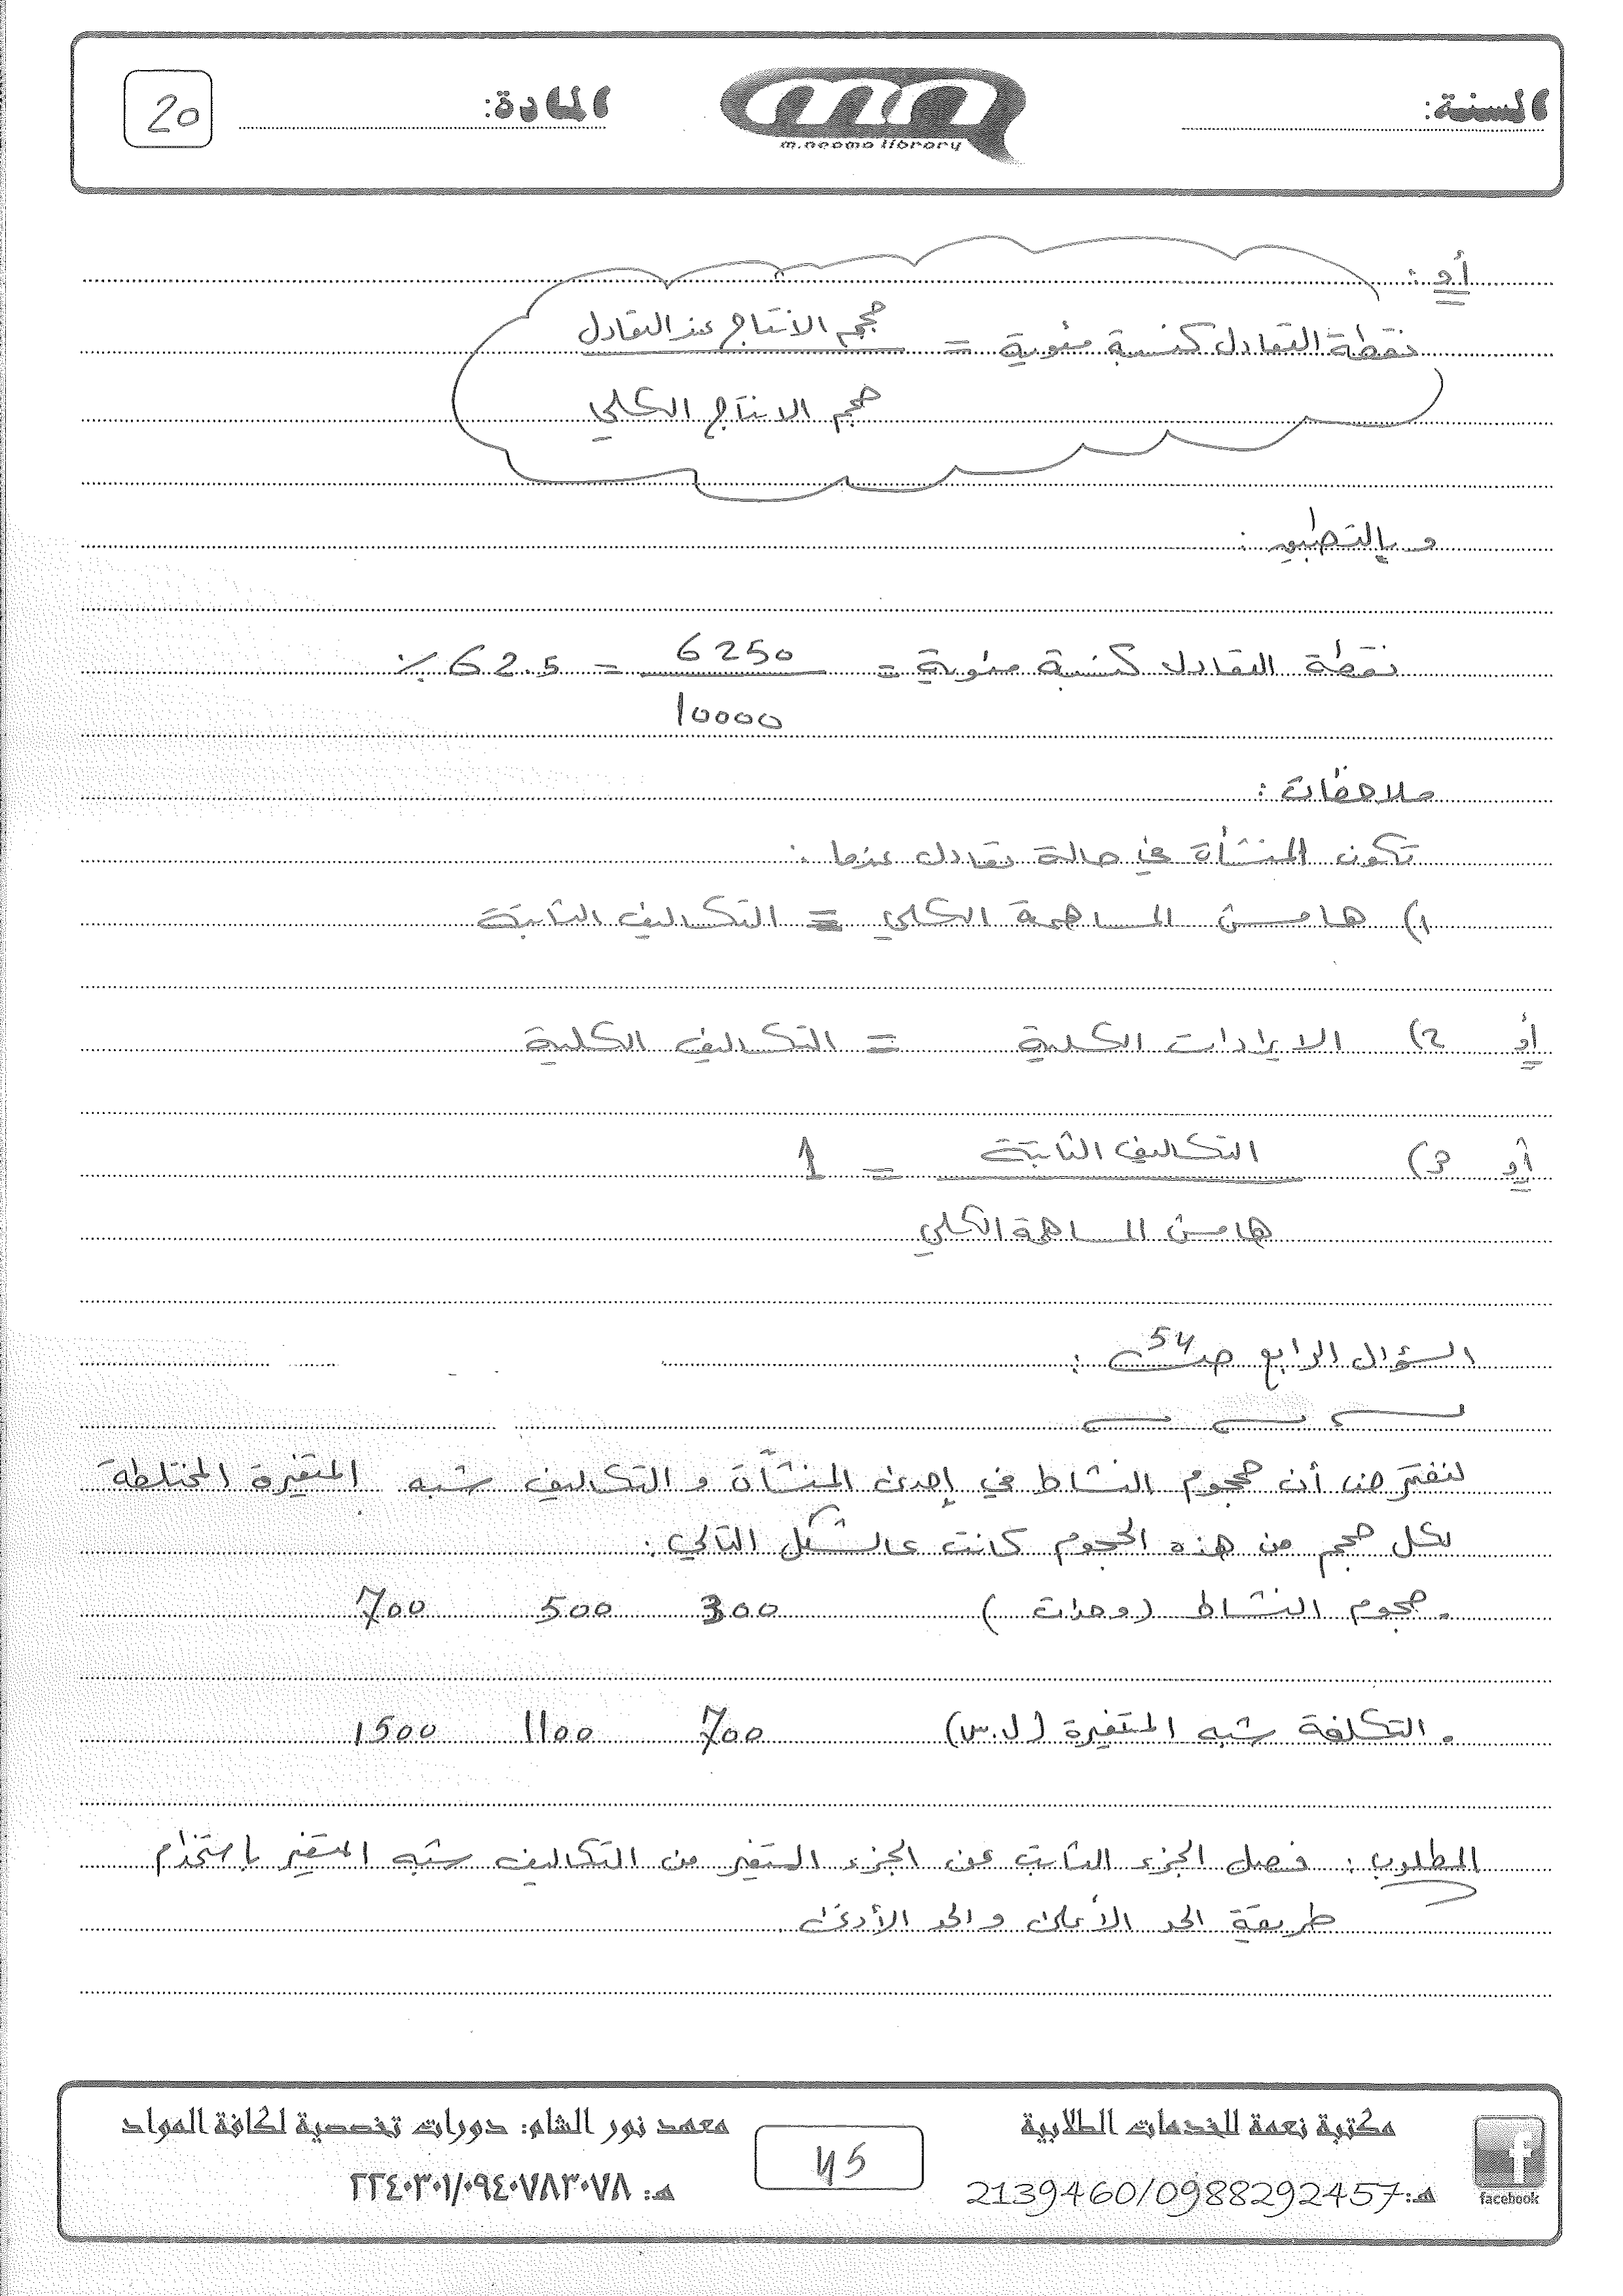 السنة:
المادة:
20
m.neama library
أو :
نقطة التعادل كنسبة مئوية = حجم الانتاج عند التعادل
حجم الانتاج الكلي
و بالتطبيق :
نقطة التعادل كنسبة مئوية = 6250 = 62.5 %
10000
ملاحظات :
تكون المنشأة في حالة تعادل عندما :
1) هامش المساهمة الكلي = التكاليف الثابتة
أو 2) الايرادات الكلية = التكاليف الكلية
أو 3) التكاليف الثابتة = 1
هامش المساهمة الكلي
السؤال الرابع صـ 54 :
لنفترض أن حجوم النشاط في إحدى المنشآت و التكاليف شبه المتغيرة المختلطة
لكل حجم من هذه الحجوم كانت كالشكل التالي :
. حجوم النشاط (وحدات) 300 500 700
. التكلفة شبه المتغيرة (ل.س) 700 1100 1500
المطلوب : فصل الجزء الثابت عن الجزء المتغير من التكاليف شبه المتغير باستخدام
طريقة الحد الأعلى و الحد الأدنى .
مكتبة نعمة للخدمات الطلابية
هـ: 2139460/0988292457
facebook
45
معهد نور الشام: دورات تخصصية لكافة المواد
هـ: ٢٢٤٠٣٠١/٠٩٤٠٧٨٣٠٧٨